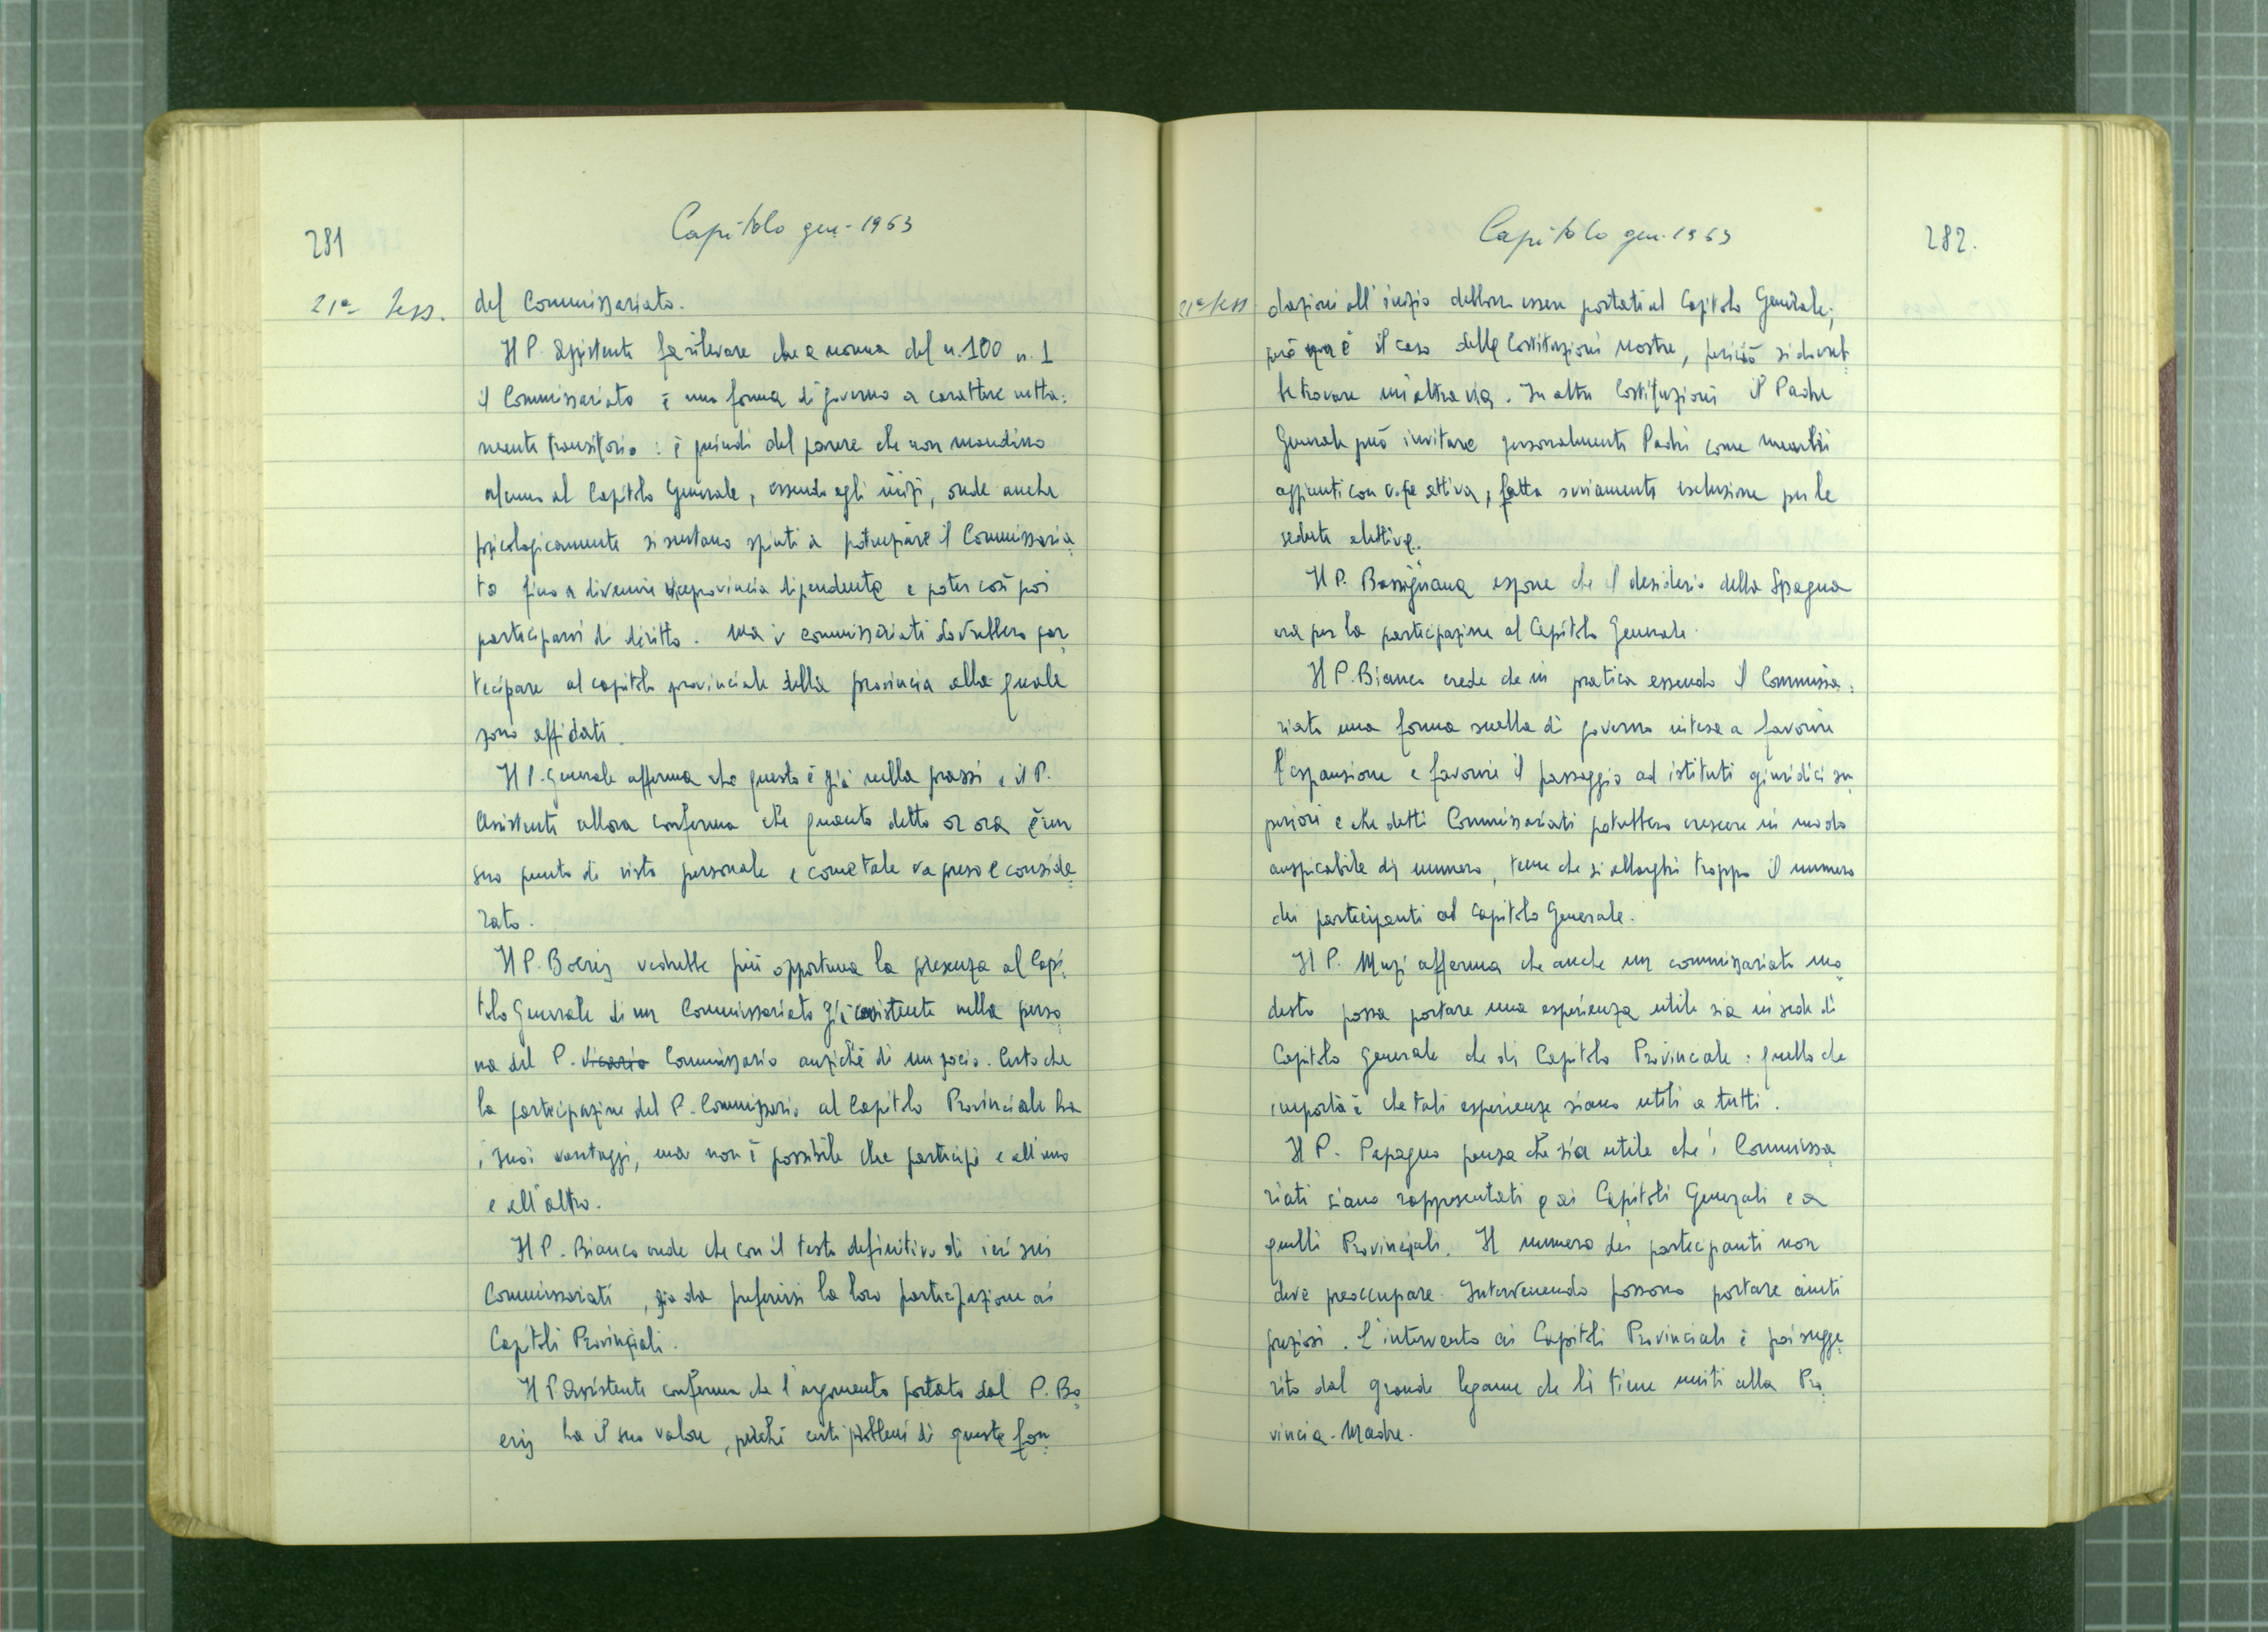 281
Capitolo gen- 1963
21ª Sess.
del Commissariato.
Il P. Assistente fa rilevare che a norma del n. 100 n. 1
il Commissariato è una forma di governo a carattere netta-
mente transitorio: è quindi del parere che non mandino
alcuno al Capitolo Generale, essendo agli inizi, onde anche
psicologicamente si sentano spinti a potenziare il Commissaria-
to fino a divenire viceprovincia dipendente e poter così poi
parteciparvi di diritto. Ma i commissariati dovrebbero par-
tecipare al capitolo provinciale della provincia alla quale
sono affidati.
Il P. Generale afferma che questo è già nella prassi e il P.
Assistente allora conferma che quanto detto or ora è un
suo punto di vista personale e come tale va preso e conside-
rato.
Il P. Boeris vedrebbe più opportuna la presenza al Capi-
tolo Generale di un Commissariato già esistente nella perso-
na del P. Vicario Commissario anziché di un socio. Certo che
la partecipazione del P. Commissario al Capitolo Provinciale ha
i suoi vantaggi, ma non è possibile che partecipi e all'uno
e all'altro.
Il P. Bianco crede che con il testo definitivo di ieri sui
Commissariati, sia da preferirsi la loro partecipazione ai
Capitoli Provinciali.
Il P. Assistente conferma che l'argomento portato dal P. Bo-
eris ha il suo valore, perché certi problemi di queste fon-
Capitolo gen. 1963
282.
21ª Sess.
dazioni all'inizio debbono essere portati al Capitolo Generale;
però è il caso delle Costituzioni nostre, perciò si dovreb-
be trovare un'altra via. In altre Costituzioni il Padre
Generale può invitare personalmente Padri come membri
aggiunti con voce attiva, fatta ovviamente esclusione per le
sedute elettive.
Il P. Bassignana espone che il desiderio della Spagna
era per la partecipazione al Capitolo Generale.
Il P. Bianco crede che in pratica essendo il Commissa-
riato una forma snella di governo intesa a favorire
l'espansione e favorire il passaggio ad istituti giuridici su-
periori e che detti Commissariati potrebbero crescere in modo
auspicabile di numero, teme che si allarghi troppo il numero
dei partecipanti al Capitolo Generale.
Il P. Muzi afferma che anche un commissariato mo-
desto possa portare una esperienza utile sia in sede di
Capitolo Generale che di Capitolo Provinciale: quello che
importa è che tali esperienze siano utili a tutti.
Il P. Papagno pensa che sia utile che i Commissa-
riati siano rappresentati e ai Capitoli Generali e a
quelli Provinciali. Il numero dei partecipanti non
deve preoccupare. Intervenendo possono portare aiuti
preziosi. L'intervento ai Capitoli Provinciali è poi sugge-
rito dal grande legame che li tiene uniti alla Pro-
vincia-Madre.